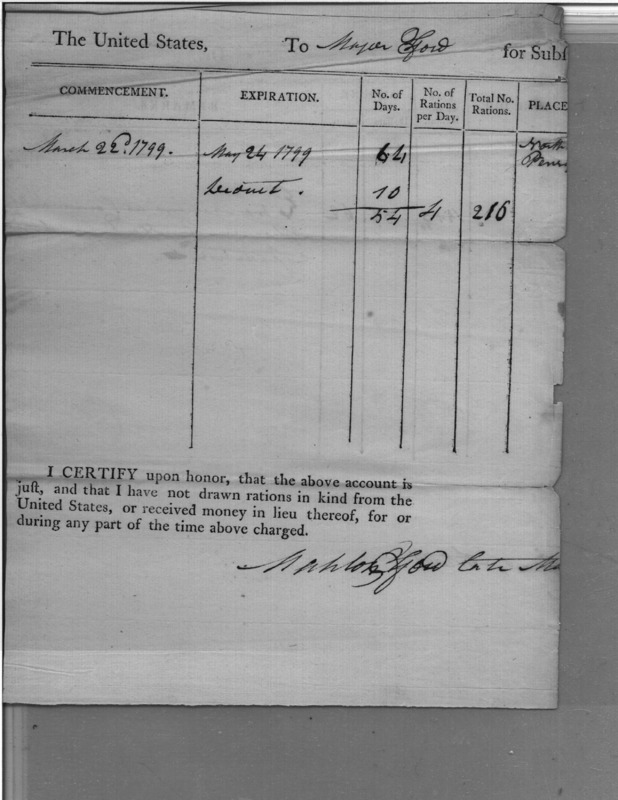 The United States, To Major Ford for Subs
COMMENCEMENT. EXPIRATION. No. of Days. No. of Rations per Day. Total No. Rations. PLACE
March 22d. 1799. May 24 1799 64
deduct. 10
54 4 216
I CERTIFY upon honor, that the above account is
juſt, and that I have not drawn rations in kind from the
United States, or received money in lieu thereof, for or
during any part of the time above charged.
Mahlon Ford late M